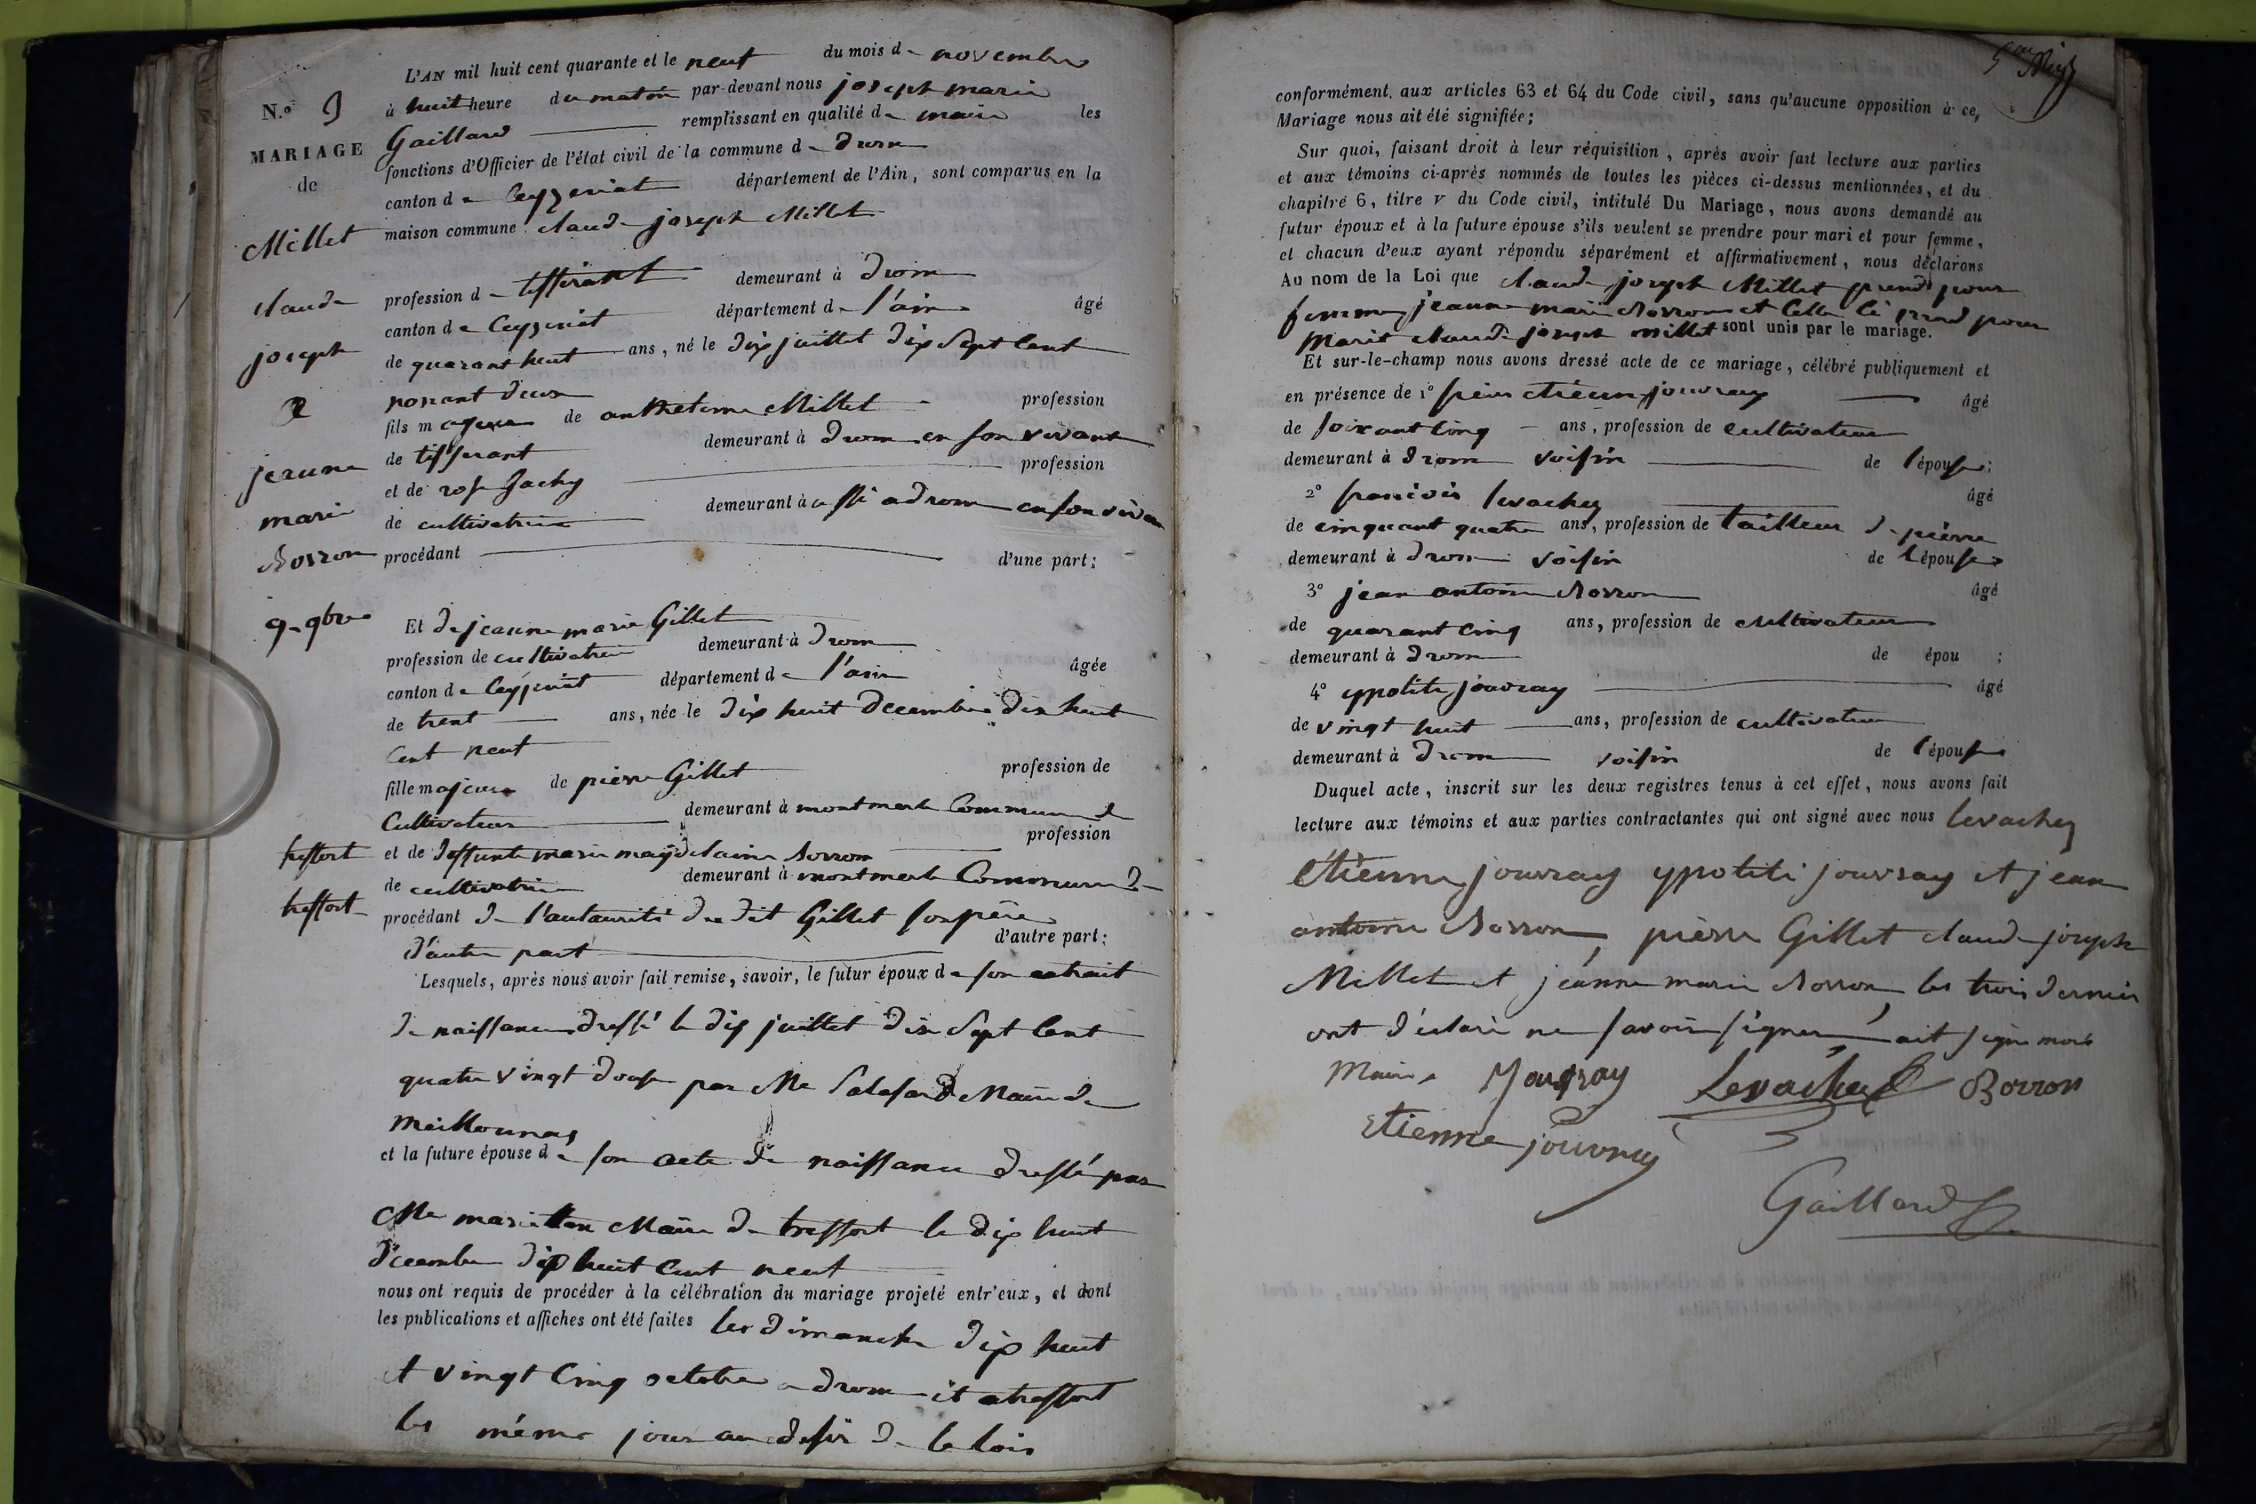 N.º 9
MARIAGE
de
Millet
claude
joseph
&
jeanne
marie
Borron
9. 9bre
L'AN mil huit cent quarante et le neuf du mois de novembre
à huit heure du matin par-devant nous joseph marie
Gaillard remplissant en qualité de maire les
fonctions d'Officier de l'état civil de la commune de Drom
canton de Ceyzeriat département de l'Ain, sont comparus en la
maison commune claude joseph Millet
profession de tisserant demeurant à Drom
canton de Ceyzeriat département de l'ain âgé
de quarant huit ans, né le dix juillet dix sept cent
nonant deux
fils majeur de antheleme Millet profession
de tisserant demeurant à Drom en son vivant
et de rose Jachy profession
de cultivatrice demeurant à ossi a Drom en son vivan
procédant d'une part;
Et de jeanne marie Gillet
profession de cultivatrice demeurant à Drom
canton de Ceyzeriat département de l'ain âgée
de trent ans, née le dix huit decembre dix huit
cent neuf
fille majeure de pierre Gillet profession de
Cultivateur demeurant à montmerle Commune de
treffort et de deffunte marie magdelaine Borron profession
de cultivatrice demeurant à montmerle Commune de
treffort procédant de l'autaurité du dit Gillet son père
d'autre part d'autre part;
Lesquels, après nous avoir fait remise, savoir, le futur époux de son extrait
de naissance dressé le dix juillet dix sept cent
quatre vingt douse par Me Salafard Maire de
meillonnas
et la future épouse de son acte de naissance dressé par
Me marietton Maire de treffort le dix huit
decembre dix huit cent neuf
nous ont requis de procéder à la célébration du mariage projeté entr'eux, et dont
les publications et affiches ont été faites les dimanche dix huit
et vingt cinq octobre a drom et a treffort
les même jour au desir de la lois
conformément aux articles 63 et 64 du Code civil, sans qu'aucune opposition à ce
Mariage nous ait été signifiée;
Sur quoi, faisant droit à leur réquisition, après avoir fait lecture aux parties
et aux témoins ci-après nommés de toutes les pièces ci-dessus mentionnées, et du
chapitre 6, titre v du Code civil, intitulé Du Mariage, nous avons demandé au
futur époux et à la future épouse s'ils veulent se prendre pour mari et pour femme,
et chacun d'eux ayant répondu séparément et affirmativement, nous déclarons
Au nom de la Loi que claude joseph Millet prend pour
femme jeanne marie Borron et celle ci prend pour
marit claude joseph millet sont unis par le mariage.
Et sur-le-champ nous avons dressé acte de ce mariage, célébré publiquement et
en présence de 1º sieur etienne jouvray âgé
de soixant cinq ans, profession de cultivateur
demeurant à Drom voisin de l'épouse;
2º francois levachez âgé
de cinquant quatre ans, profession de tailleur de pierre
demeurant à Drom voisin de l'épouse
3º jean antoine Borron âgé
de quarant cinq ans, profession de cultivateur
demeurant à Drom de épou ;
4º ypolite jouvray âgé
de vingt huit ans, profession de cultivateur
demeurant à Drom voisin de l'épouse
Duquel acte, inscrit sur les deux registres tenus à cet effet, nous avons fait
lecture aux témoins et aux parties contractantes qui ont signé avec nous levachez
étienne jouvray ypoliti jouvray et jean
antoine Borron, pierre Gillet claude joseph
Millet et jéanne marie Borron, les trois dernier
ont déclaré ne savoir signer, ait signé nous
Maire Jouvray Levachez Borron
etienne jouvray
Gaillard